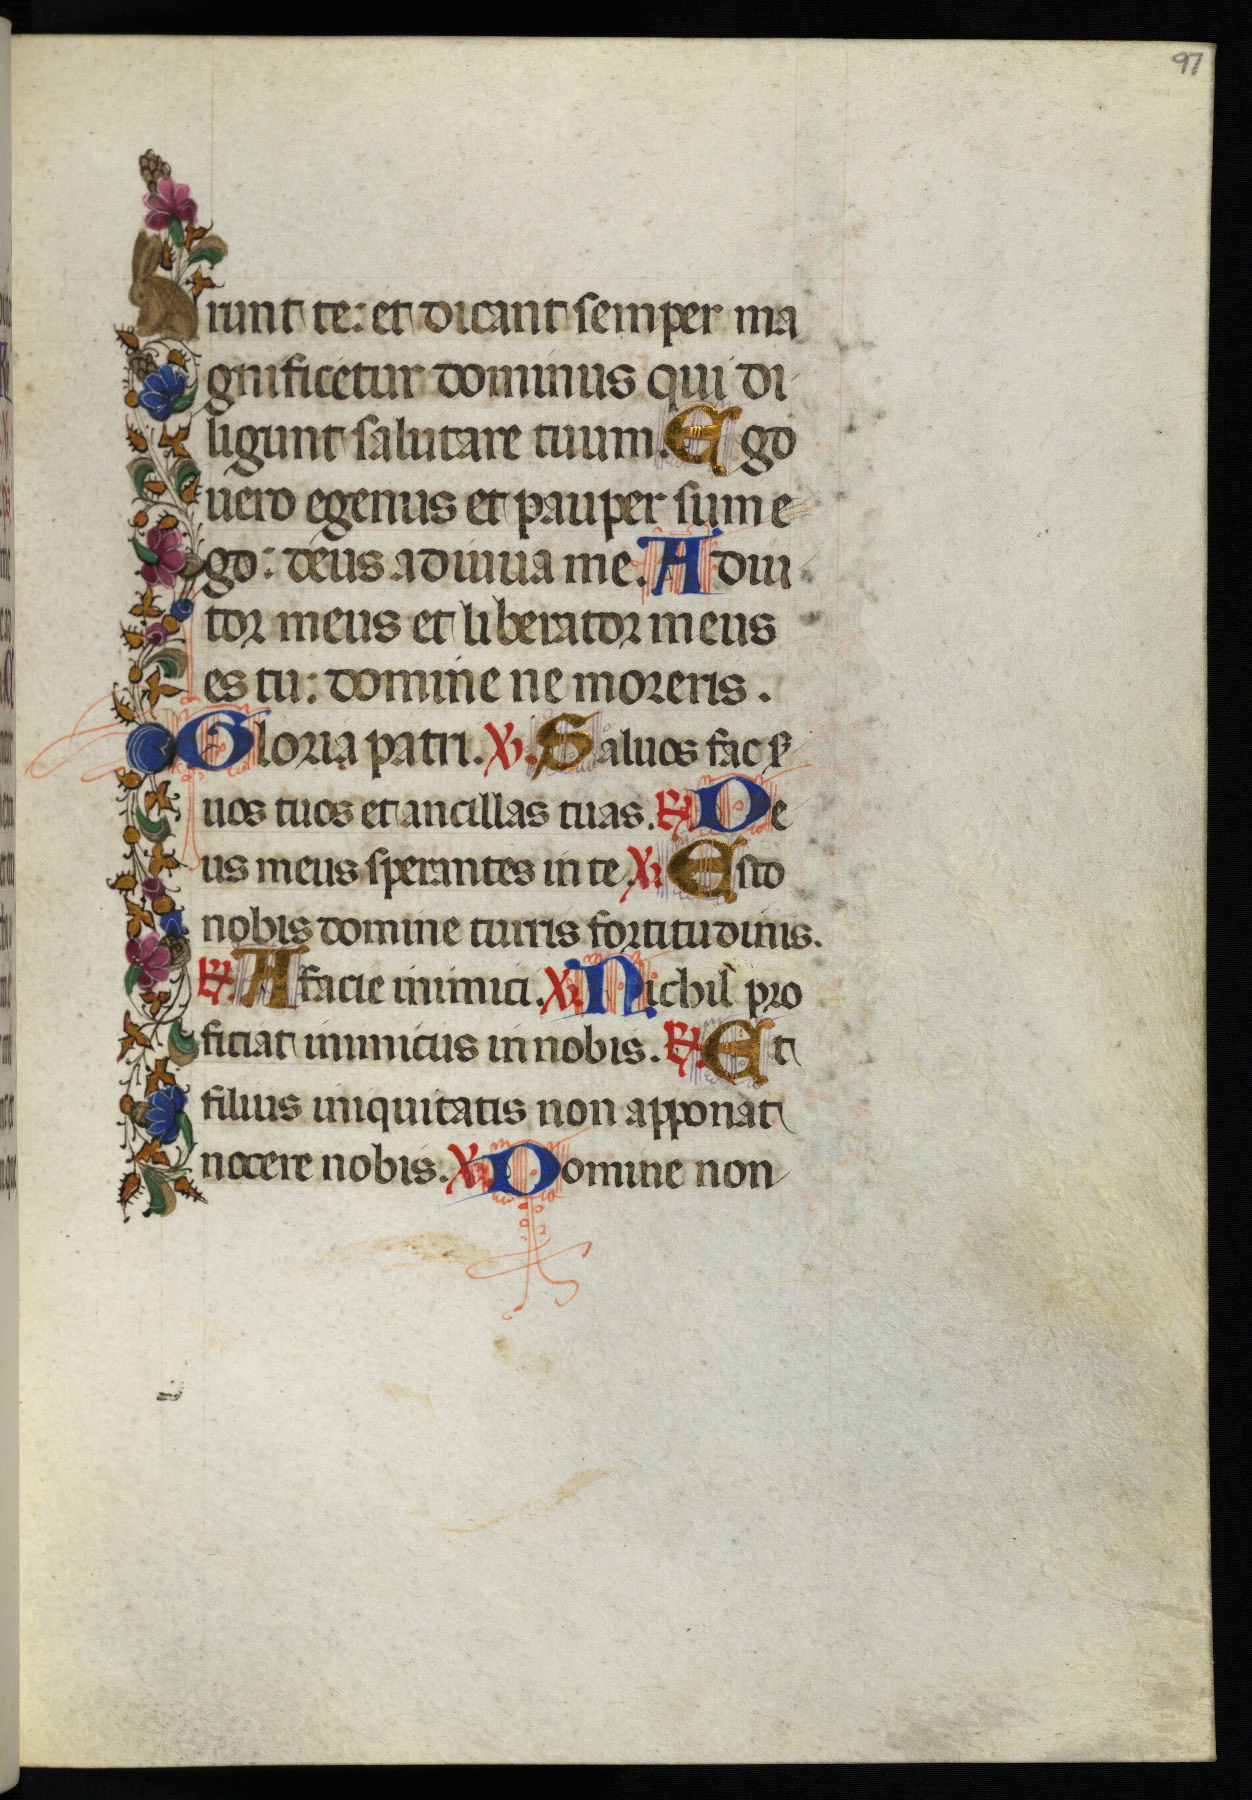 97
runt te: et dicant semper ma
gnificetur dominus qui di
ligunt salutare tuum. Ego
uero egenus et pauper sum e
go: deus adiuua me. Adiu
tor meus et liberator meus
es tu: domine ne moreris.
Gloria patri. ℣. Saluos fac s̄
uos tuos et ancillas tuas. ℟. De
us meus sperantes in te. ℣. Esto
nobis domine turris fortitudinis.
℟. A facie inimici. ℣. Nichil pro
ficiat inimicus in nobis. ℟. Et
filius iniquitatis non apponat
nocere nobis. ℣. Domine non